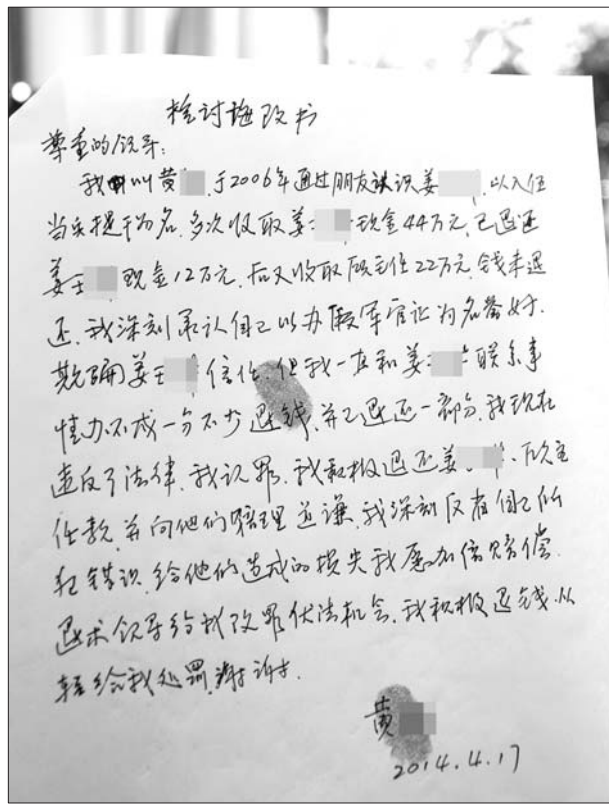 检讨悔改书
尊重的领导:
我叫黄 于2006年通过朋友认识姜 , 以入伍
当兵提干为名, 多次收取姜 现金44万元, 已退还
姜 现金12万元, 后又收取 主任22万元, 钱未退
还, 我深刻承认自己以办假军官证为名
欺骗姜 信任, 但我一直和姜 联系事
情办不成一分不少退钱, 并已退还一部分, 我现在
违反了法律, 我认罪, 我积极退还姜 、 主
任款, 并向他们赔理道谦, 我深刻反省自己所
犯错误, 给他们造成的损失我愿加倍赔偿.
恳求领导给我改罪伏法机会, 我积极退钱, 从
轻给我处罚, 谢谢.
黄
2014.4.17